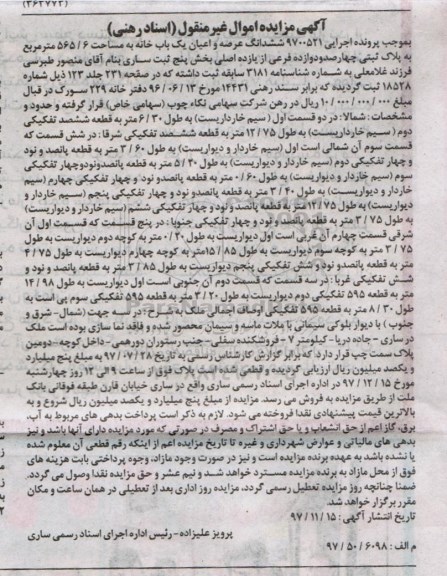 (۳۶۲۷۷۲)
آگهی مزایده اموال غیر منقول (اسناد رهنی)
بموجب پرونده اجرایی ۹۷۰۰۵۲۱ ششدانگ عرصه و اعیان یک باب خانه به مساحت ۶ / ۵۶۵ مترمربع
به پلاک ثبتی چهارصدودوازده فرعی از یازده اصلی بخش پنج ثبت ساری بنام آقای منصور طبرسی
فرزند غلامعلی به شماره شناسنامه ۳۱۸۱ سابقه ثبت داشته که در صفحه ۲۳۱ جلد ۱۲۳ ذیل شماره
۱۸۵۲۸ ثبت گردیده که برابر سند رهنی ۱۴۴۳۱ مورخ ۱۳ / ۰۶ / ۹۶ دفتر خانه ۲۲۹ سورک در قبال
مبلغ ۱۰/۰۰۰/۰۰۰/۰۰۰ ریال در رهن شرکت سهامی نگاه چوب (سهامی خاص) قرار گرفته و حدود و
مشخصات : شمالا : در دو قسمت اول (سیم خارداریست) به طول ۳۰ / ۶ متر به قطعه ششصد تفکیکی
دوم (سیم خارداریست) به طول ۷۵ / ۱۲ متر به قطعه ششصد تفکیکی شرقا : در شش قسمت که
قسمت سوم آن شمالی است اول (سیم خاردار و دیواریست) به طول ۶۰ / ۳ متر به قطعه پانصد و نود
و چهار تفکیکی دوم (سیم خاردار و دیواریست) به طول ۳۰ / ۵ متر به قطعه پانصدونودوچهار تفکیکی
سوم (سیم خاردار و دیواریست) به طول ۶۰ / ۰ متر به قطعه پانصدو نود و چهار تفکیکی چهارم (سیم
خاردار و دیواریست) به طول ۴۰ / ۳ متر به قطعه پانصدو نود و چهار تفکیکی پنجم (سیم خاردار و
دیواریست) به طول ۷۵ / ۱۲ متر به قطعه پانصد و نود و چهار تفکیکی ششم (سیم خاردار و دیواریست)
به طول ۷۵ / ۳ متر به قطعه پانصد و نود و چهار تفکیکی جنوبا : در پنج قسمت که قسمت اول آن
شرقی قسمت چهارم آن غربی است اول دیواریست به طول ۳۰ / ۰ متر به کوچه دوم دیواریست به طول
۷۵ / ۳ متر به کوچه سوم دیواریست به طول ۸۵ / ۱۵ متر به کوچه چهارم دیواریست به طول ۷۵ / ۴
متر به قطعه پانصد و نود و شش تفکیکی پنجم دیواریست به طول ۸۵ / ۳ متر به قطعه پانصد و نود و
شش تفکیکی غربا : در سه قسمت که قسمت دوم آن جنوبی است اول دیواریست به طول ۹۸ / ۱۴
متر به قطعه ۵۹۵ تفکیکی دوم دیواریست به طول ۲۰ / ۳ متر به قطعه ۵۹۵ تفکیکی سوم پی است به
طول ۳۰ / ۸ متر به قطعه ۵۹۵ تفکیکی اوصاف اجمالی ملک به شرح : در سه جهت (شمال - شرق و
جنوب ) با دیوار بلوکی سیمانی با ملات ماسه و سیمان محصور شده و فاقد نما سازی بوده است ملک
در ساری - جاده دریا - کیلومتر ۷ - فروشکنده سفلی - جنب رستوران دورهمی - داخل کوچه - دومین
پلاک سمت چپ قرار دارد که برابر گزارش کارشناس رسمی به تاریخ ۲۸ / ۰۷ / ۹۷ به مبلغ پنج میلیارد
و یکصد میلیون ریال ارزیابی گردیده و قطعی شده است پلاک فوق از ساعت ۹ الی ۱۲ روز چهارشنبه
مورخ ۱۵ / ۱۲ / ۹۷ در اداره اجرای اسناد رسمی ساری واقع در ساری خیابان قارن طبقه فوقانی بانک
ملت از طریق مزایده به فروش می رسد. مزایده از مبلغ پنج میلیارد و یکصد میلیون ریال شروع و به
بالاترین قیمت پیشنهادی نقدا فروخته می شود. لازم به ذکر است پرداخت بدهی های مربوط به آب،
برق، گاز اعم از حق انشعاب و یا حق اشتراک و مصرف در صورتی که مورد مزایده دارای آنها باشد و نیز
بدهی های مالیاتی و عوارض شهرداری و غیره تا تاریخ مزایده اعم از اینکه رقم قطعی آن معلوم شده
یا نشده باشد به عهده برنده مزایده است و نیز در صورت وجود مازاد، وجوه پرداختی بابت هزینه های
فوق از محل مازاد به برنده مزایده مسترد خواهد شد و نیم عشر و حق مزایده نقدا وصول می گردد.
ضمنا چنانچه روز مزایده تعطیل رسمی گردد، مزایده روز اداری بعد از تعطیلی در همان ساعت و مکان
مقرر برگزار خواهد شد.
تاریخ انتشار آگهی : ۱۵ / ۱۱ / ۹۷
پرویز علیزاده - رئیس اداره اجرای اسناد رسمی ساری
م الف : ۶۰۹۸ / ۵۰ / ۹۷